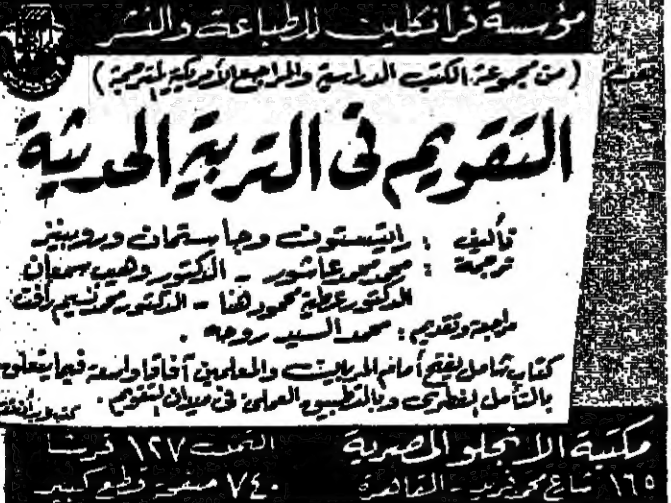 مؤسسة فرانكلين للطباعة والنشر
(من مجموعة الكتب الدراسية والمراجع الأمريكية المترجمة)
التقويم فى التربية الحديثة
تأليف : رايتستون وجاستمان وروبينز
ترجمة : محمد محمد عاشور - الدكتور وهيب سمعان
الدكتور عطية محمود هنا - الدكتور محمد نسيم رأفت
مراجعة وتقديم : محمد السيد روحه .
كتاب شامل يفتح أمام المربين والمعلمين آفاقا واسعة فيما يتعلق
بالتأمل النظرى وبالتطبيق العملى فى ميدان التقويم .
مكتبة الانجلو المصرية
١٦٥ شارع محمد فريد - القاهرة
الثمن ١٢٧ قرشا
٧٤٠ صفحة قطع كبير